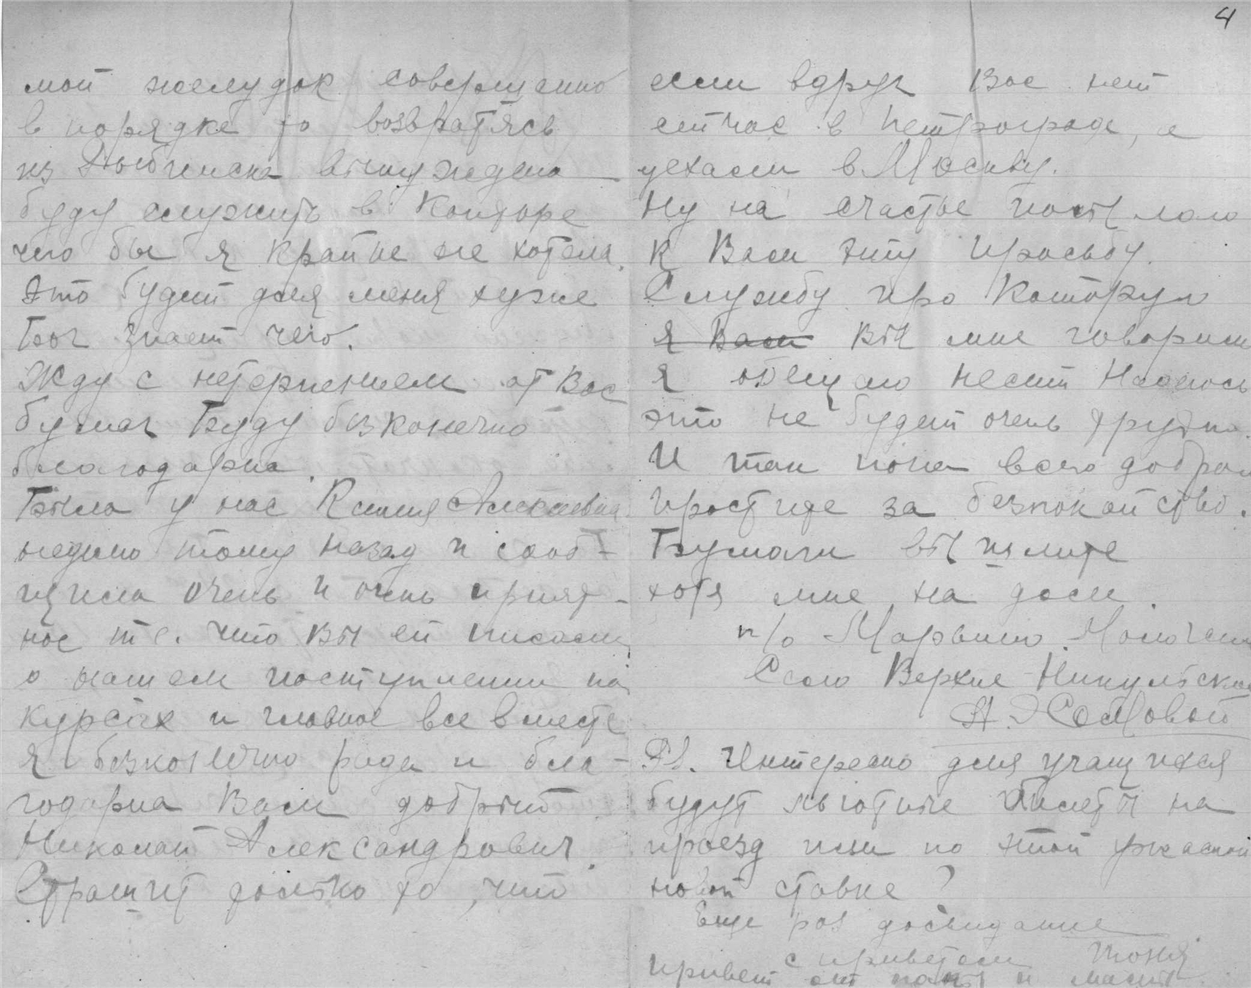 4
мой желудок совершенно
в порядке то возвратясь
из Рыбинска вынуждена
буду служить в Конторе
чего бы я крайне не хотела.
Это будет для меня хуже
Бог знает чего.
Жду с нетерпением от Вас
бумаг Буду безконечно
благодарна.
Была у нас Алексеевна
неделю тому назад и сооб-
щила очень и очень прият-
ное т.е. что Вы ей писали
о нашем поступлении на
курсах и главное все вместе
Я безконечно рада и бла-
годарна Вам добрый
Николай Александрович.
Страшит только то, что
если вдруг Вас нет
сейчас в Петрограде, а
уехали в Москву.
Ну на счастье посылаю
к Вам эту просьбу.
Службу про которую
я Вам Вы мне говорили
я обещаю нести Надеюсь
это не будет очень трудно.
И так пока всего доброго
простите за безпокойство.
Бумаги вышлите
хотя мне на дом.
п/о Марьино
Село Верхне-Никульское
А Э Сомовой
Интересно для учащихся
будут льготные билеты на
проезд или по этой ужасной
новой ставке?
Еще раз досвидание
с приветом Тоня
Привет от папы и мамы